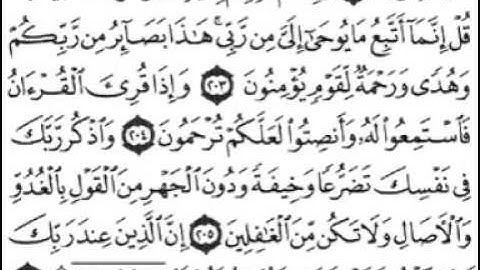 قُلْ إِنَّمَآ أَتَّبِعُ مَا يُوحَىٰٓ إِلَىَّ مِن رَّبِّى ۚ هَٰذَا بَصَآئِرُ مِن رَّبِّكُمْ
وَهُدًى وَرَحْمَةٌ لِّقَوْمٍ يُؤْمِنُونَ ٢٠٣ وَإِذَا قُرِئَ الْقُرْءَانُ
فَاسْتَمِعُوا لَهُۥ وَأَنصِتُوا لَعَلَّكُمْ تُرْحَمُونَ ٢٠٤ وَاذْكُر رَّبَّكَ
فِى نَفْسِكَ تَضَرُّعًا وَخِيفَةً وَدُونَ الْجَهْرِ مِنَ الْقَوْلِ بِالْغُدُوِّ
وَالْأَصَالِ وَلَا تَكُن مِّنَ الْغَٰفِلِينَ ٢٠٥ إِنَّ الَّذِينَ عِندَ رَبِّكَ